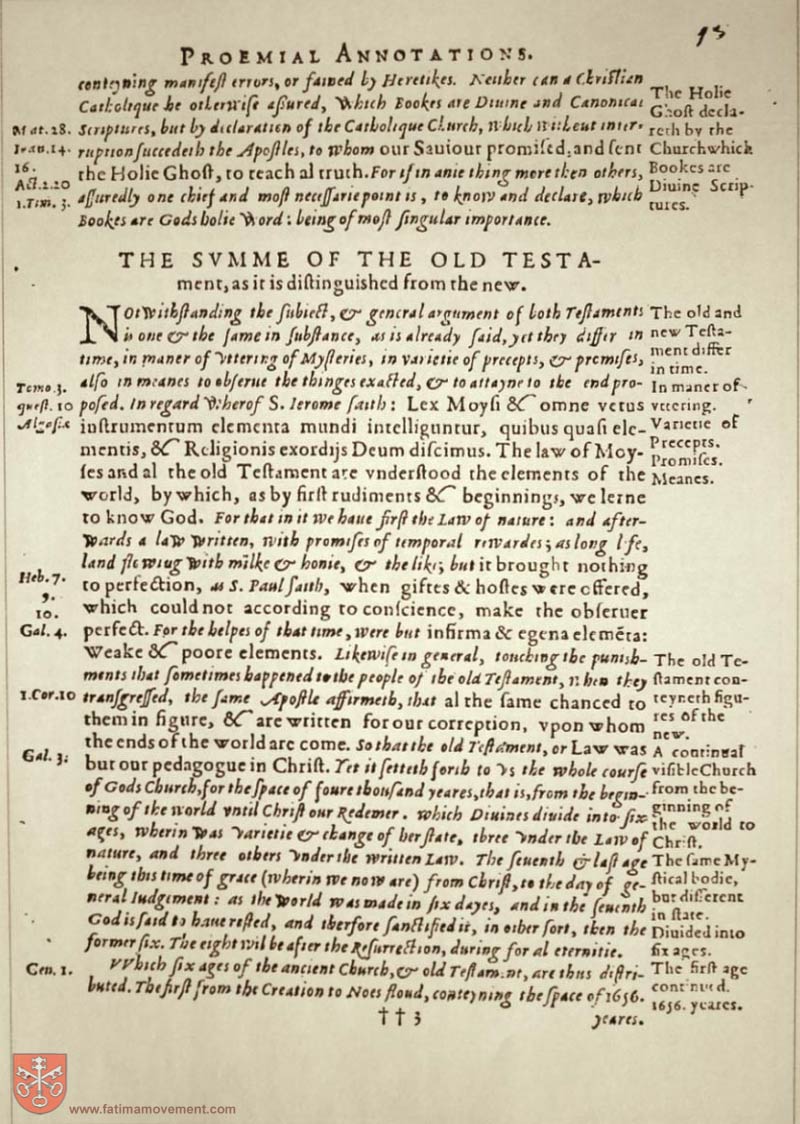 13
PROEMIAL ANNOTATIONS.
conteyning manifest errors, or fained by Heretikes. Neither can a Christian
Catholique be otherwise assured, which Bookes are Diuine and Canonical
Scriptures, but by declaration of the Catholique Church, which without inter-
ruption succedeth the Apostles, to whom our Sauiour promised, and sent
the Holie Ghost, to teach al truth. For if in anie thing more then others,
assuredly one chief and most necessarie point is, to know and declare, which
Bookes are Gods holie Word: being of most singular importance.
Mat. 28.
Ioan. 14.
16.
Act. 1. 20
1. Tim. 3.
The Holie
Ghost decla-
reth by the
Church which
Bookes are
Diuine Scrip-
tures.
THE SVMME OF THE OLD TESTA-
ment, as it is distinguished from the new.
NOtwithstanding the subiect, & general argument of both Testaments
is one & the same in substance, as is already said, yet they differ in
time, in maner of vttering of Mysteries, in varietie of precepts, & promises,
also in meanes to obserue the thinges exacted, & to attayne to the end pro-
posed. In regard wherof S. Ierome saith: Lex Moysi & omne vetus
instrumentum elementa mundi intelliguntur, quibus quasi ele-
mentis, & Religionis exordijs Deum discimus. The law of Moy-
ses and al the old Testament are vnderstood the elements of the
world, by which, as by first rudiments & beginnings, we lerne
to know God. For that in it we haue first the Law of nature: and after-
wards a law written, with promises of temporal rewardes; as long life,
land flowing with milke & honie, & the like; but it brought nothing
to perfection, as S. Paul saith, when giftes & hostes were offered,
which could not according to conscience, make the obseruer
perfect. For the helpes of that time, were but infirma & egena elemēta:
Weake & poore elements. Likewise in general, touching the punish-
ments that sometimes happened to the people of the old Testament, when they
transgressed, the same Apostle affirmeth, that al the same chanced to
them in figure, & are written for our correption, vpon whom
the ends of the world are come. So that the old Testament, or Law was
but our pedagogue in Christ. Yet it setteth forth to vs the whole course
of Gods Church, for the space of foure thousand yeares, that is, from the begin-
ning of the world vntil Christ our Redemer. which Diuines diuide into six
ages, wherin was varietie & change of her state, three vnder the Law of
nature, and three others vnder the written Law. The seuenth & last age
being this time of grace (wherin we now are) from Christ, to the day of ge-
neral Iudgement: as the world was made in six dayes, and in the seuenth
God is said to haue rested, and therfore sanctified it, in other sort, then the
former six. The eight wil be after the Resurrection, during for al eternitie.
VVhich six ages of the ancient Church, & old Testament, are thus distri-
buted. The first from the Creation to Noes floud, conteyning the space of 1656.
††3
yeares.
Tomo. 3.
quest. 10
Algasiæ
Heb. 7.
9.
10.
Gal. 4.
1. Cor. 10
Gal. 3.
Gen. 1.
The old and
new Testa-
ment differ
in time.
In maner of
vttering.
Varietie of
Precepts.
Promises.
Meanes.
The old Te-
stament con-
teyneth figu-
res of the
new.
A continual
visible Church
from the be-
ginning of
the world to
Christ.
The same My-
stical bodie,
but different
in state.
Diuided into
six ages.
The first age
continued.
1656. yeares.
www.fatimamovement.com